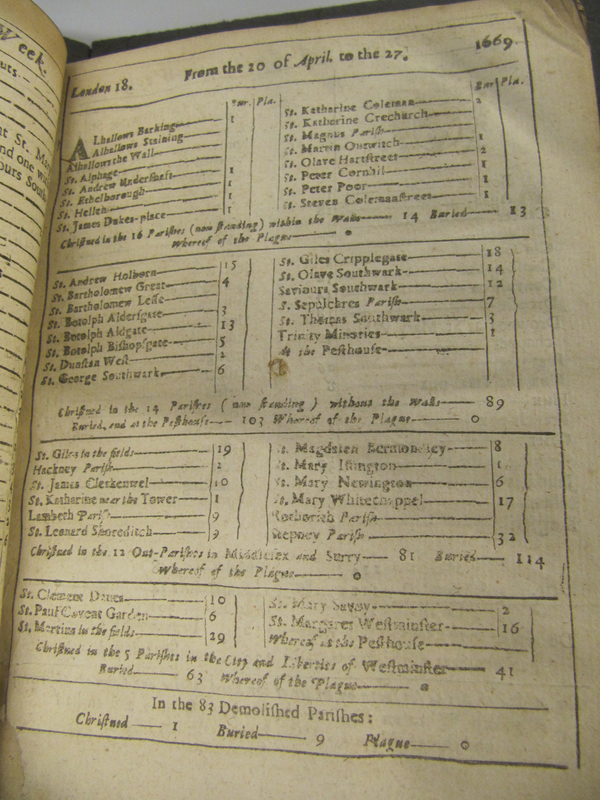 Week.
London 18. From the 20 of April. to the 27. 1669
Bur. Pla.
ALhallows Barking 1
Alhallows Staining
Alhallows the Wall
St. Alphage
St. Andrew Undershaft 1
St. Ethelborough 1
St. Hellen 1
St. James Dukes-place 1
Bur Pla.
St. Katharine Coleman 2
St. Katherine Creechurch
St. Magnus Parish 1
St. Martin Outwitch
St. Olave Hartstreet 2
St. Peter Cornhil 1
St. Peter Poor 1
St. Steven Colemanstreet 1
Christned in the 16 Parishes (now standing) within the Walls 14 Buried 13
Whereof of the Plague 0
St. Andrew Holborn 15
St. Bartholomew Great 4
St. Bartholomew Lesse
St. Botolph Aldersgate 3
St. Botolph Aldgate 13
St. Botolph Bishopsgate 5
St. Dunstan West 2
St. George Southwark 6
St. Giles Cripplegate 18
St. Olave Southwark 14
Saviours Southwark 12
S. Sepulchres Parish 7
St. Thomas Southwark 3
Trinity Minories 1
At the Pesthouse
Christned in the 14 Parishes (now standing) without the Walls 89
Buried, and at the Pesthouse 103 Whereof of the Plague 0
St. Giles in the fields 19
Hackney Parish 2
St. James Clerkenwel 10
St. Katharine near the Tower 1
Lambeth Parish 9
St. Leonard Shoreditch 9
St. Magdalen Bermondsey 8
St. Mary Islington 1
St. Mary Newington 6
St. Mary Whitechappel 17
Rotherith Parish
Stepney Parish 32
Christned in the 12 Out-Parishes in Middlesex and Surry 81 Buried 114
Whereof of the Plague 0
St. Clement Danes 10
St. Paul Covent Garden 6
St. Martins in the fields 29
St. Mary Savoy 2
St. Margaret Westminster 16
Whereof at the Pesthouse
Christned in the 5 Parishes in the City and Liberties of Westminster 41
Buried 63 Whereof of the Plague 0
In the 83 Demolished Parishes:
Christned 1 Buried 9 Plague 0